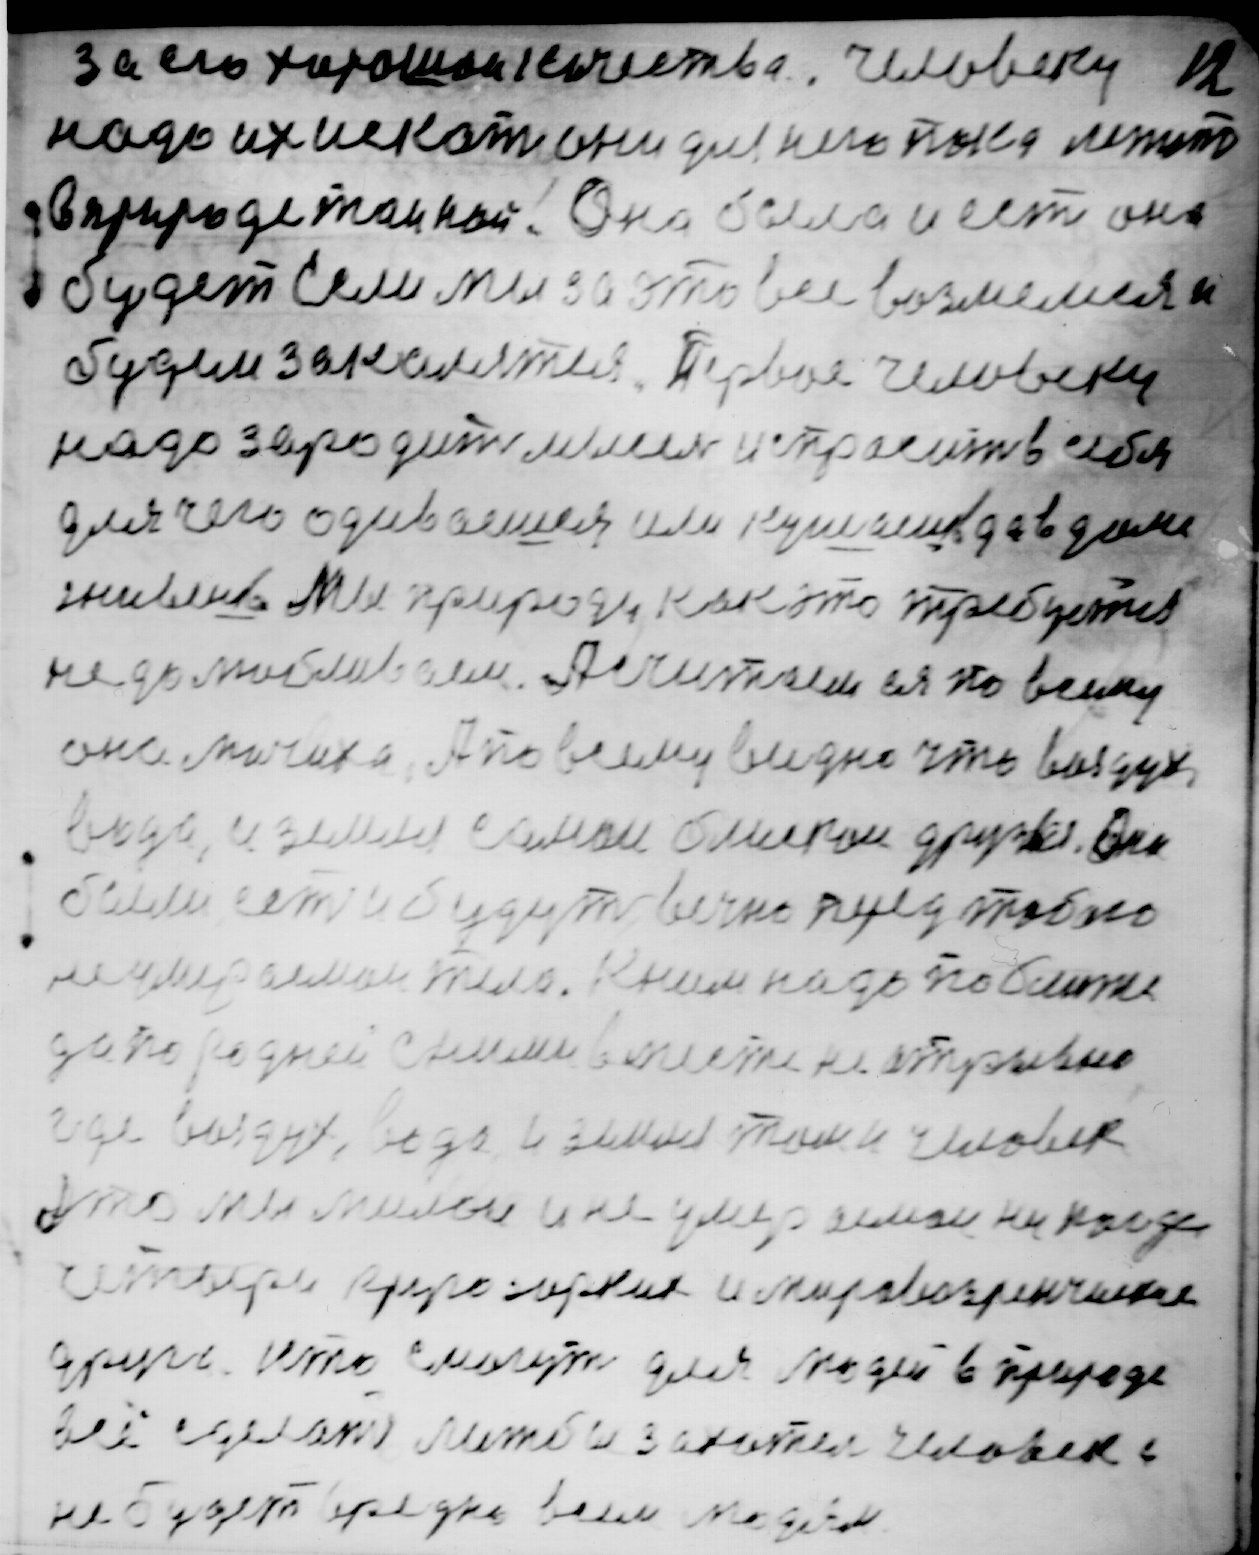 за его хорошаи качества. Человеку 12
надо их искать они для него пока лежать
в природе тайной! Она была и есть она
будет Если мы за это все возмемся и
будем закалятся. Первое человеку
надо зародить мысля испросить в себя
для чего одиваешся или кушаишь да в доме
живешь Мы природу как это требуется
недолюбливаем. А считаем ся по всему
она мачиха, А по всему видно что воздух,
вода, и земля самаи блискаи друзья. Они
были, есть и будут, вечно перед тобою
неумераемаи тела. К ним надо поближе
да породней с ними вместе не отрывно,
где воздух, вода, и земля там и человек
Это мы милые и не умераемаи никогда
четыри
друга. Кто смогут для людей в природе
всё сделать лишбы захотел человек а
не будет вредно всем людям.